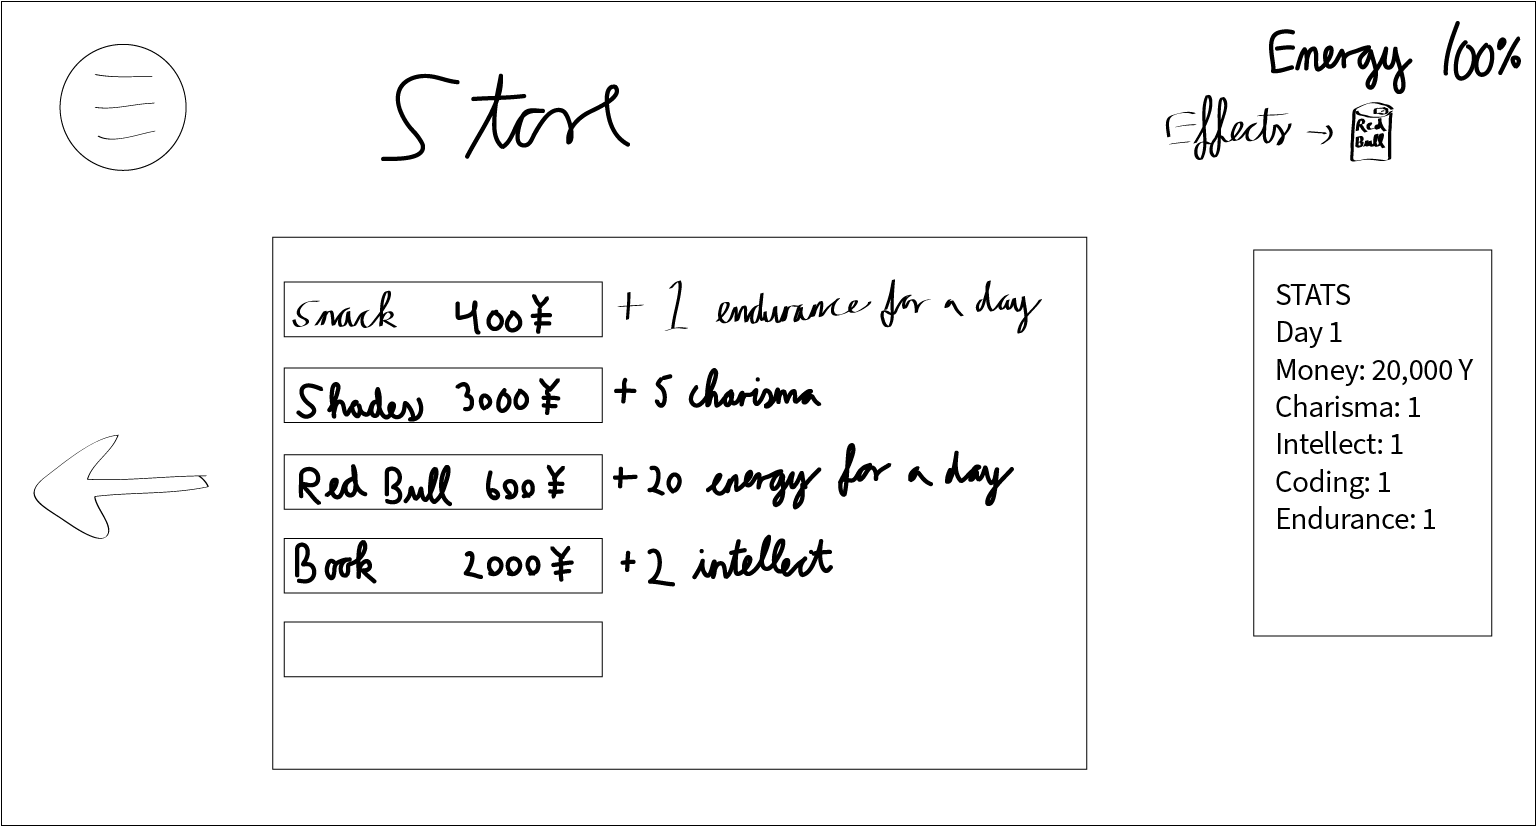 Store
Energy 100%
Effects →
Red
Bull
Snack 400¥ + 1 endurance for a day
Shades 3000¥ + 5 charisma
Red Bull 600¥ +20 energy for a day
Book 2000¥ +2 intellect
STATS
Day 1
Money: 20,000 Y
Charisma: 1
Intellect: 1
Coding: 1
Endurance: 1